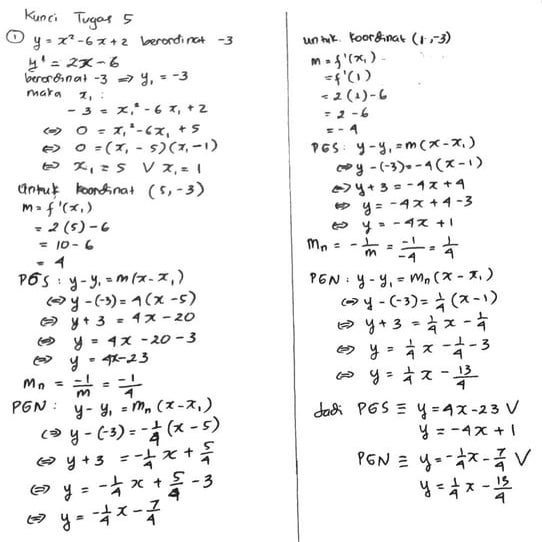 Kunci Tugas 5
① y = x² - 6x + 2 berordinat -3
y' = 2x - 6
berordinat -3 ⇒ y₁ = -3
maka x₁ :
-3 = x₁² - 6x₁ + 2
⇔ 0 = x₁² - 6x₁ + 5
⇔ 0 = (x₁ - 5)(x₁ - 1)
⇔ x₁ = 5 ∨ x₁ = 1
Untuk koordinat (5, -3)
m = f'(x₁)
= 2(5) - 6
= 10 - 6
= 4
PGS : y - y₁ = m(x - x₁)
⇔ y - (-3) = 4(x - 5)
⇔ y + 3 = 4x - 20
⇔ y = 4x - 20 - 3
⇔ y = 4x - 23
mₙ = -1/m = -1/4
PGN : y - y₁ = mₙ(x - x₁)
⇔ y - (-3) = -1/4 (x - 5)
⇔ y + 3 = -1/4 x + 5/4
⇔ y = -1/4 x + 5/4 - 3
⇔ y = -1/4 x - 7/4
untuk koordinat (1, -3)
m = f'(x₁)
= f'(1)
= 2(1) - 6
= 2 - 6
= -4
PGS : y - y₁ = m(x - x₁)
⇔ y - (-3) = -4(x - 1)
⇔ y + 3 = -4x + 4
⇔ y = -4x + 4 - 3
⇔ y = -4x + 1
mₙ = -1/m = -1/-4 = 1/4
PGN : y - y₁ = mₙ(x - x₁)
⇔ y - (-3) = 1/4 (x - 1)
⇔ y + 3 = 1/4 x - 1/4
⇔ y = 1/4 x - 1/4 - 3
⇔ y = 1/4 x - 13/4
Jadi PGS ≡ y = 4x - 23 ∨
y = -4x + 1
PGN ≡ y = -1/4 x - 7/4 ∨
y = 1/4 x - 13/4